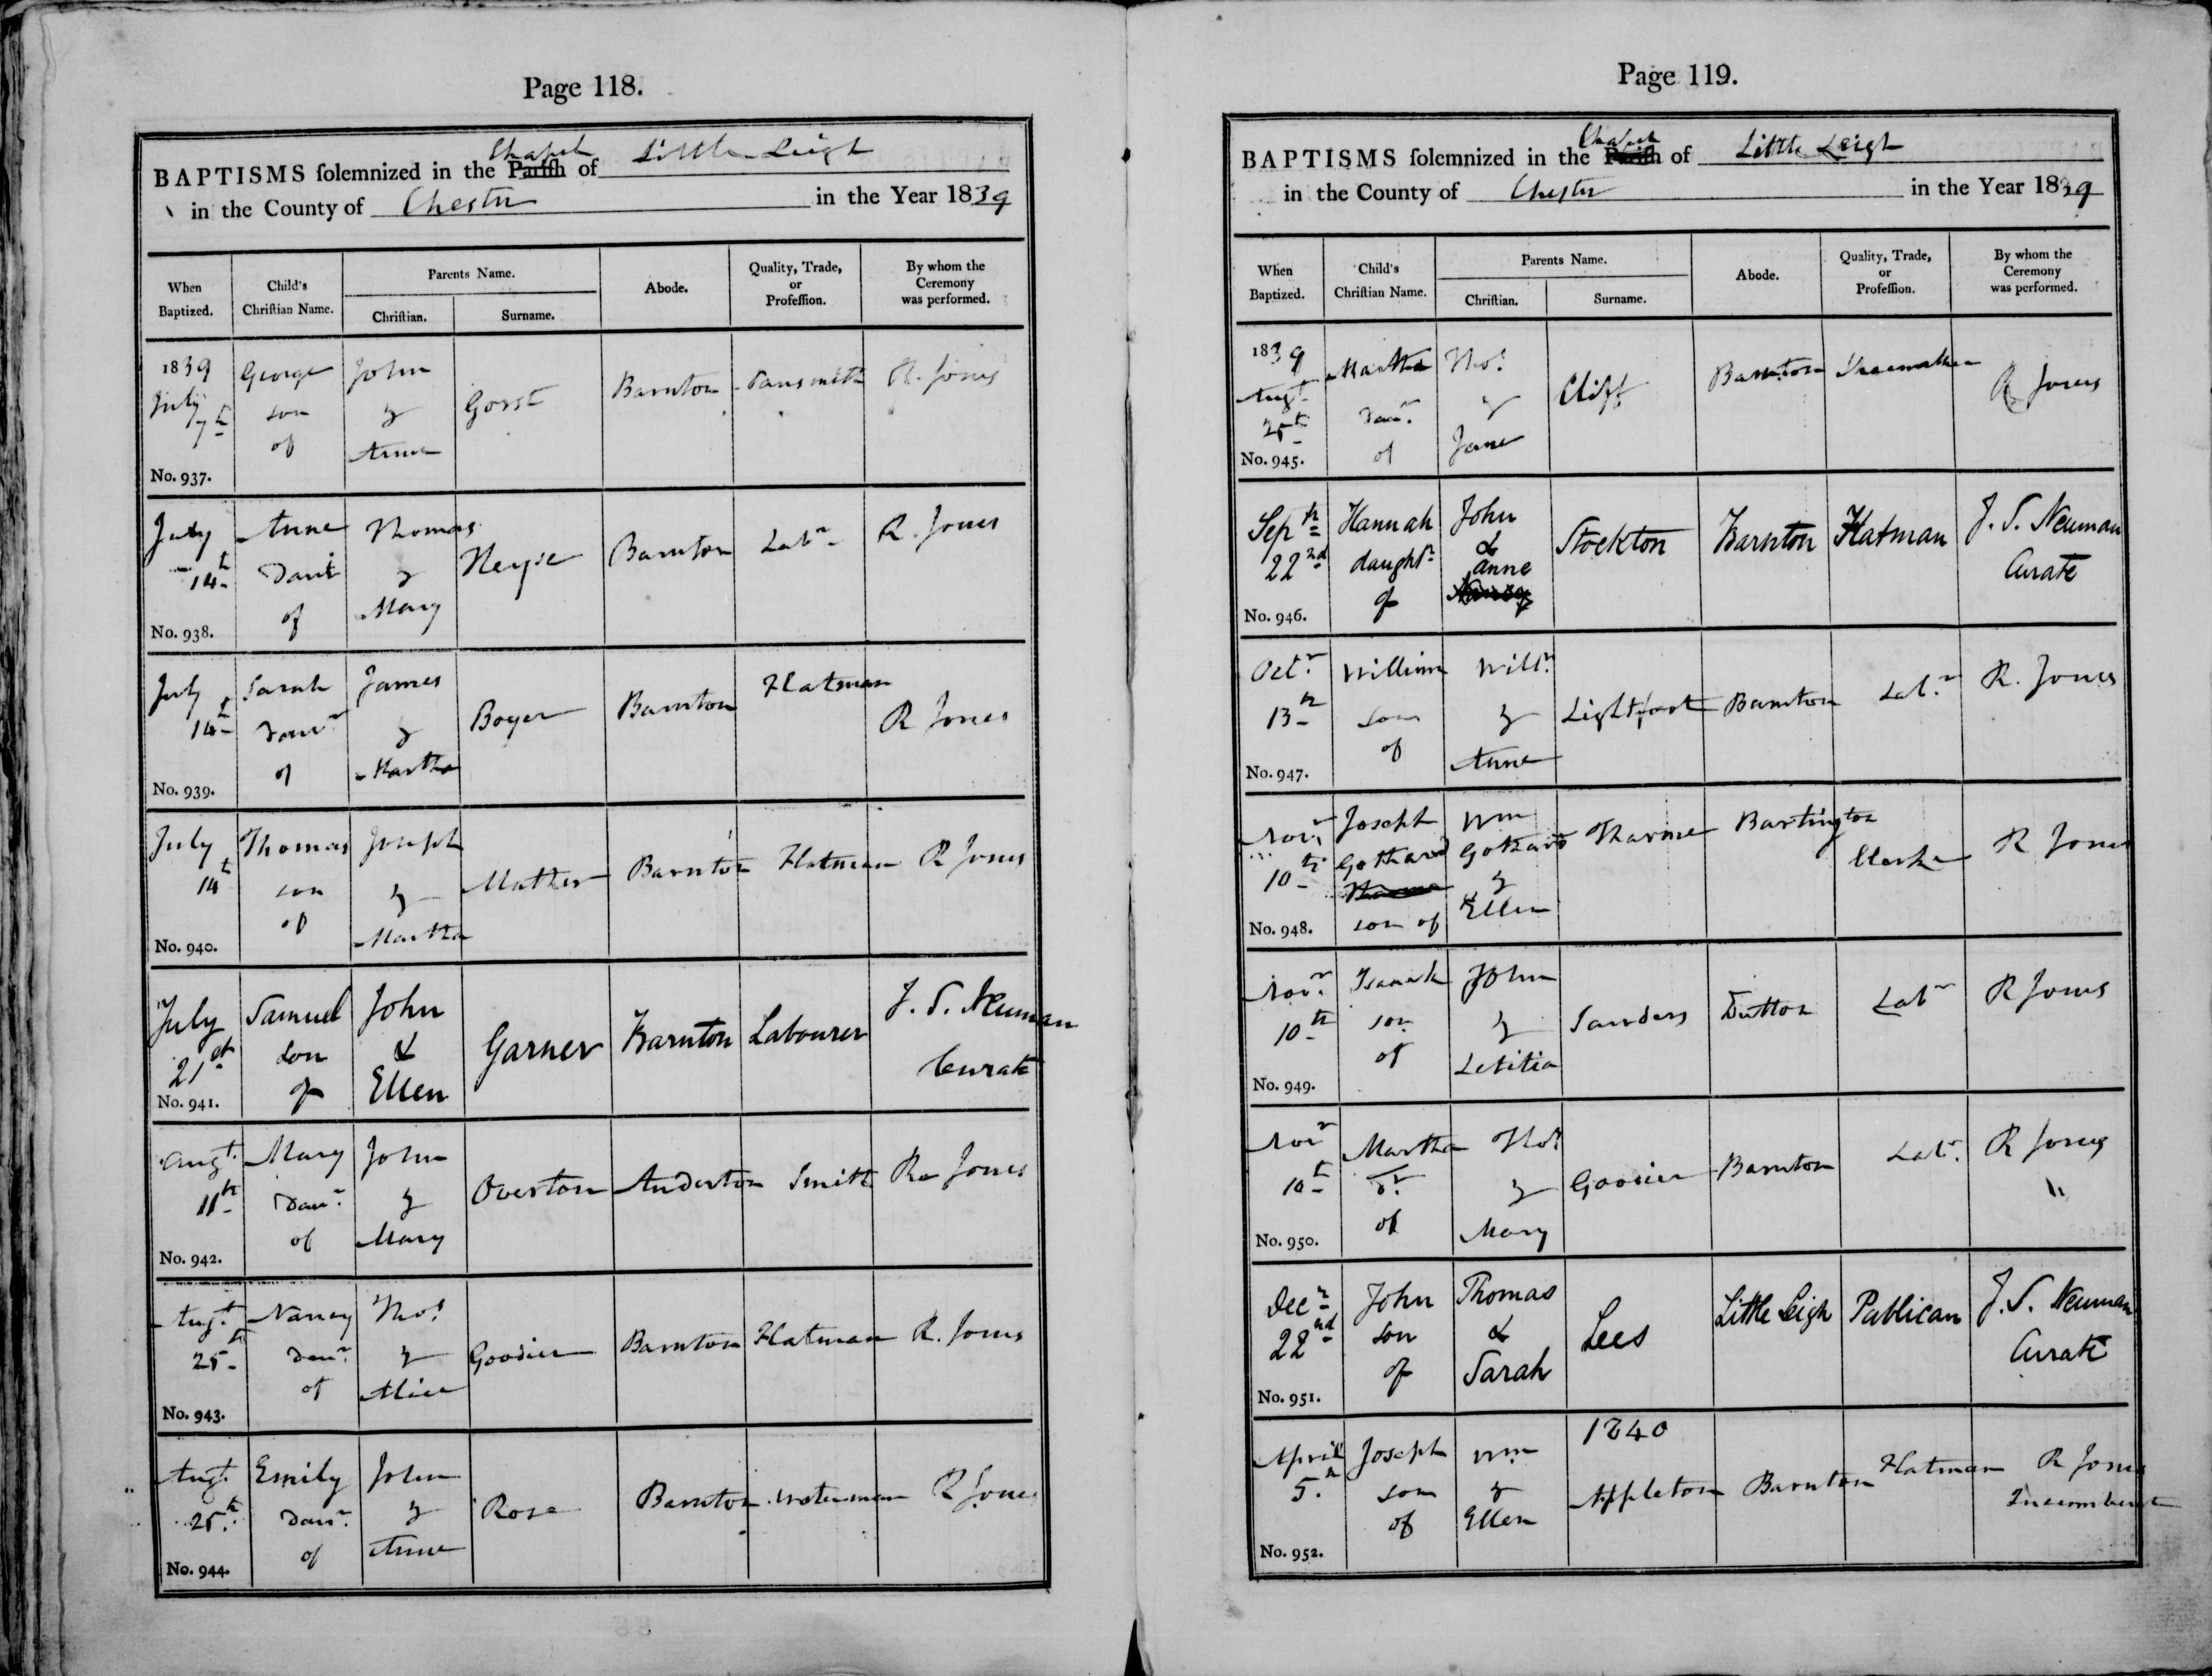 Page 118.
BAPTISMS ſolemnized in the Pariſh Chapel of Little Leigh
in the County of Chester in the Year 1839
When Baptized.
Child's Chriſtian Name.
Parents Name.
Chriſtian.
Surname.
Abode.
Quality, Trade, or Profeſſion.
By whom the Ceremony was performed.
1839 July 7th George son of John & Anne Gorst Barnton Pansmith R. Jones
No. 937.
July 14th Anne Daur of Thomas & Mary Barnton Labr R. Jones
No. 938.
July 14th Sarah Daur of James & Martha Boyer Barnton Flatman R Jones
No. 939.
July 14th Thomas son of Joseph & Martha Mather Barnton Flatman R Jones
No. 940.
July 21st Samuel son of John & Ellen Garner Barnton Labourer J. S. Neuman Curate
No. 941.
Augt 11th Mary Daur of John & Mary Overton Anderton Smith R Jones
No. 942.
Augt 25th Nancy Daur of Thos & Alice Goosier Barnton Flatman R. Jones
No. 943.
Augt 25th Emily Daur of John & Anne Rose Barnton waterman R Jones
No. 944.
Page 119.
BAPTISMS ſolemnized in the Pariſh Chapel of Little Leigh
in the County of Chester in the Year 1839
When Baptized.
Child's Chriſtian Name.
Parents Name.
Chriſtian.
Surname.
Abode.
Quality, Trade, or Profeſſion.
By whom the Ceremony was performed.
1839 Augt 25th Martha Daur. of Thos & Jane Clift Barnton Shoemaker R Jones
No. 945.
Sepr 22nd Hannah daughtr of John & anne Stockton Barnton Flatman J. S. Neuman Curate
No. 946.
Octr 13th William son of Willm & Anne Lightfoot Barnton Labr R. Jones
No. 947.
Novr 10th Joseph Gothard son of Wm Gothard & Ellen Tharme Bartington Clerk R Jones
No. 948.
Novr 10th son of John & Letitia Sanders Dutton Labr R Jones
No. 949.
Novr 10th Martha Dr of Thos & Mary Goosier Barnton Labr. R Jones "
No. 950.
Decr 22nd John son of Thomas & Sarah Lees Little Leigh Publican J. S. Neuman Curate
No. 951.
1840
April 5th Joseph son of Wm & Ellen Appleton Barnton Flatman R Jones Incumbent
No. 952.